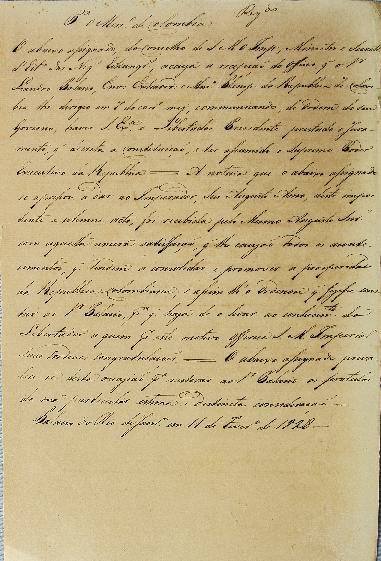 Pª o Minº de Colombia
O abaixo assignado, do conselho de S. M. O Imp., Ministro e Secretº
d'Estº dos Negº Estrangº, accusa a recepção do officio q o Sr
Leandro Palacio, Enviº Extraordº e Minº Plenip. da Republica de Colom
bia lhe dirigio em 7 do corº mez, communicando, de Ordem do seu
Governo, haver S. Exª o Libertador Presidente prestado o jura
mento, q decreta a constituição, e ter assumido o supremo Poder
Executivo da Republica — A noticia que o abaixo assignado
se apressou a dar ao Imperador, Seu Augusto Amo, deste
e solemne acto, foi recebida pelo Mesmo Augusto Senr
com aquella sincera satisfação, q lhe causão todos os aconte
cimentos, q tendem a consolidar e promover a prosperidade
da Republica Colombiana, e assim lh'o Ordenou q
ao Sr Palacio, pª q haja de o levar ao conhecimto do
Libertador a quem pr este motivo offerece S. M. Imperial
Suas congratulações — O abaixo assignado
se desta occasião pª reiterar ao Sr Palacio os protestos
de sua particular estima e distincta consideração —
Palacio do Rio de Janrº em 11 de Fevrº de 1828 —